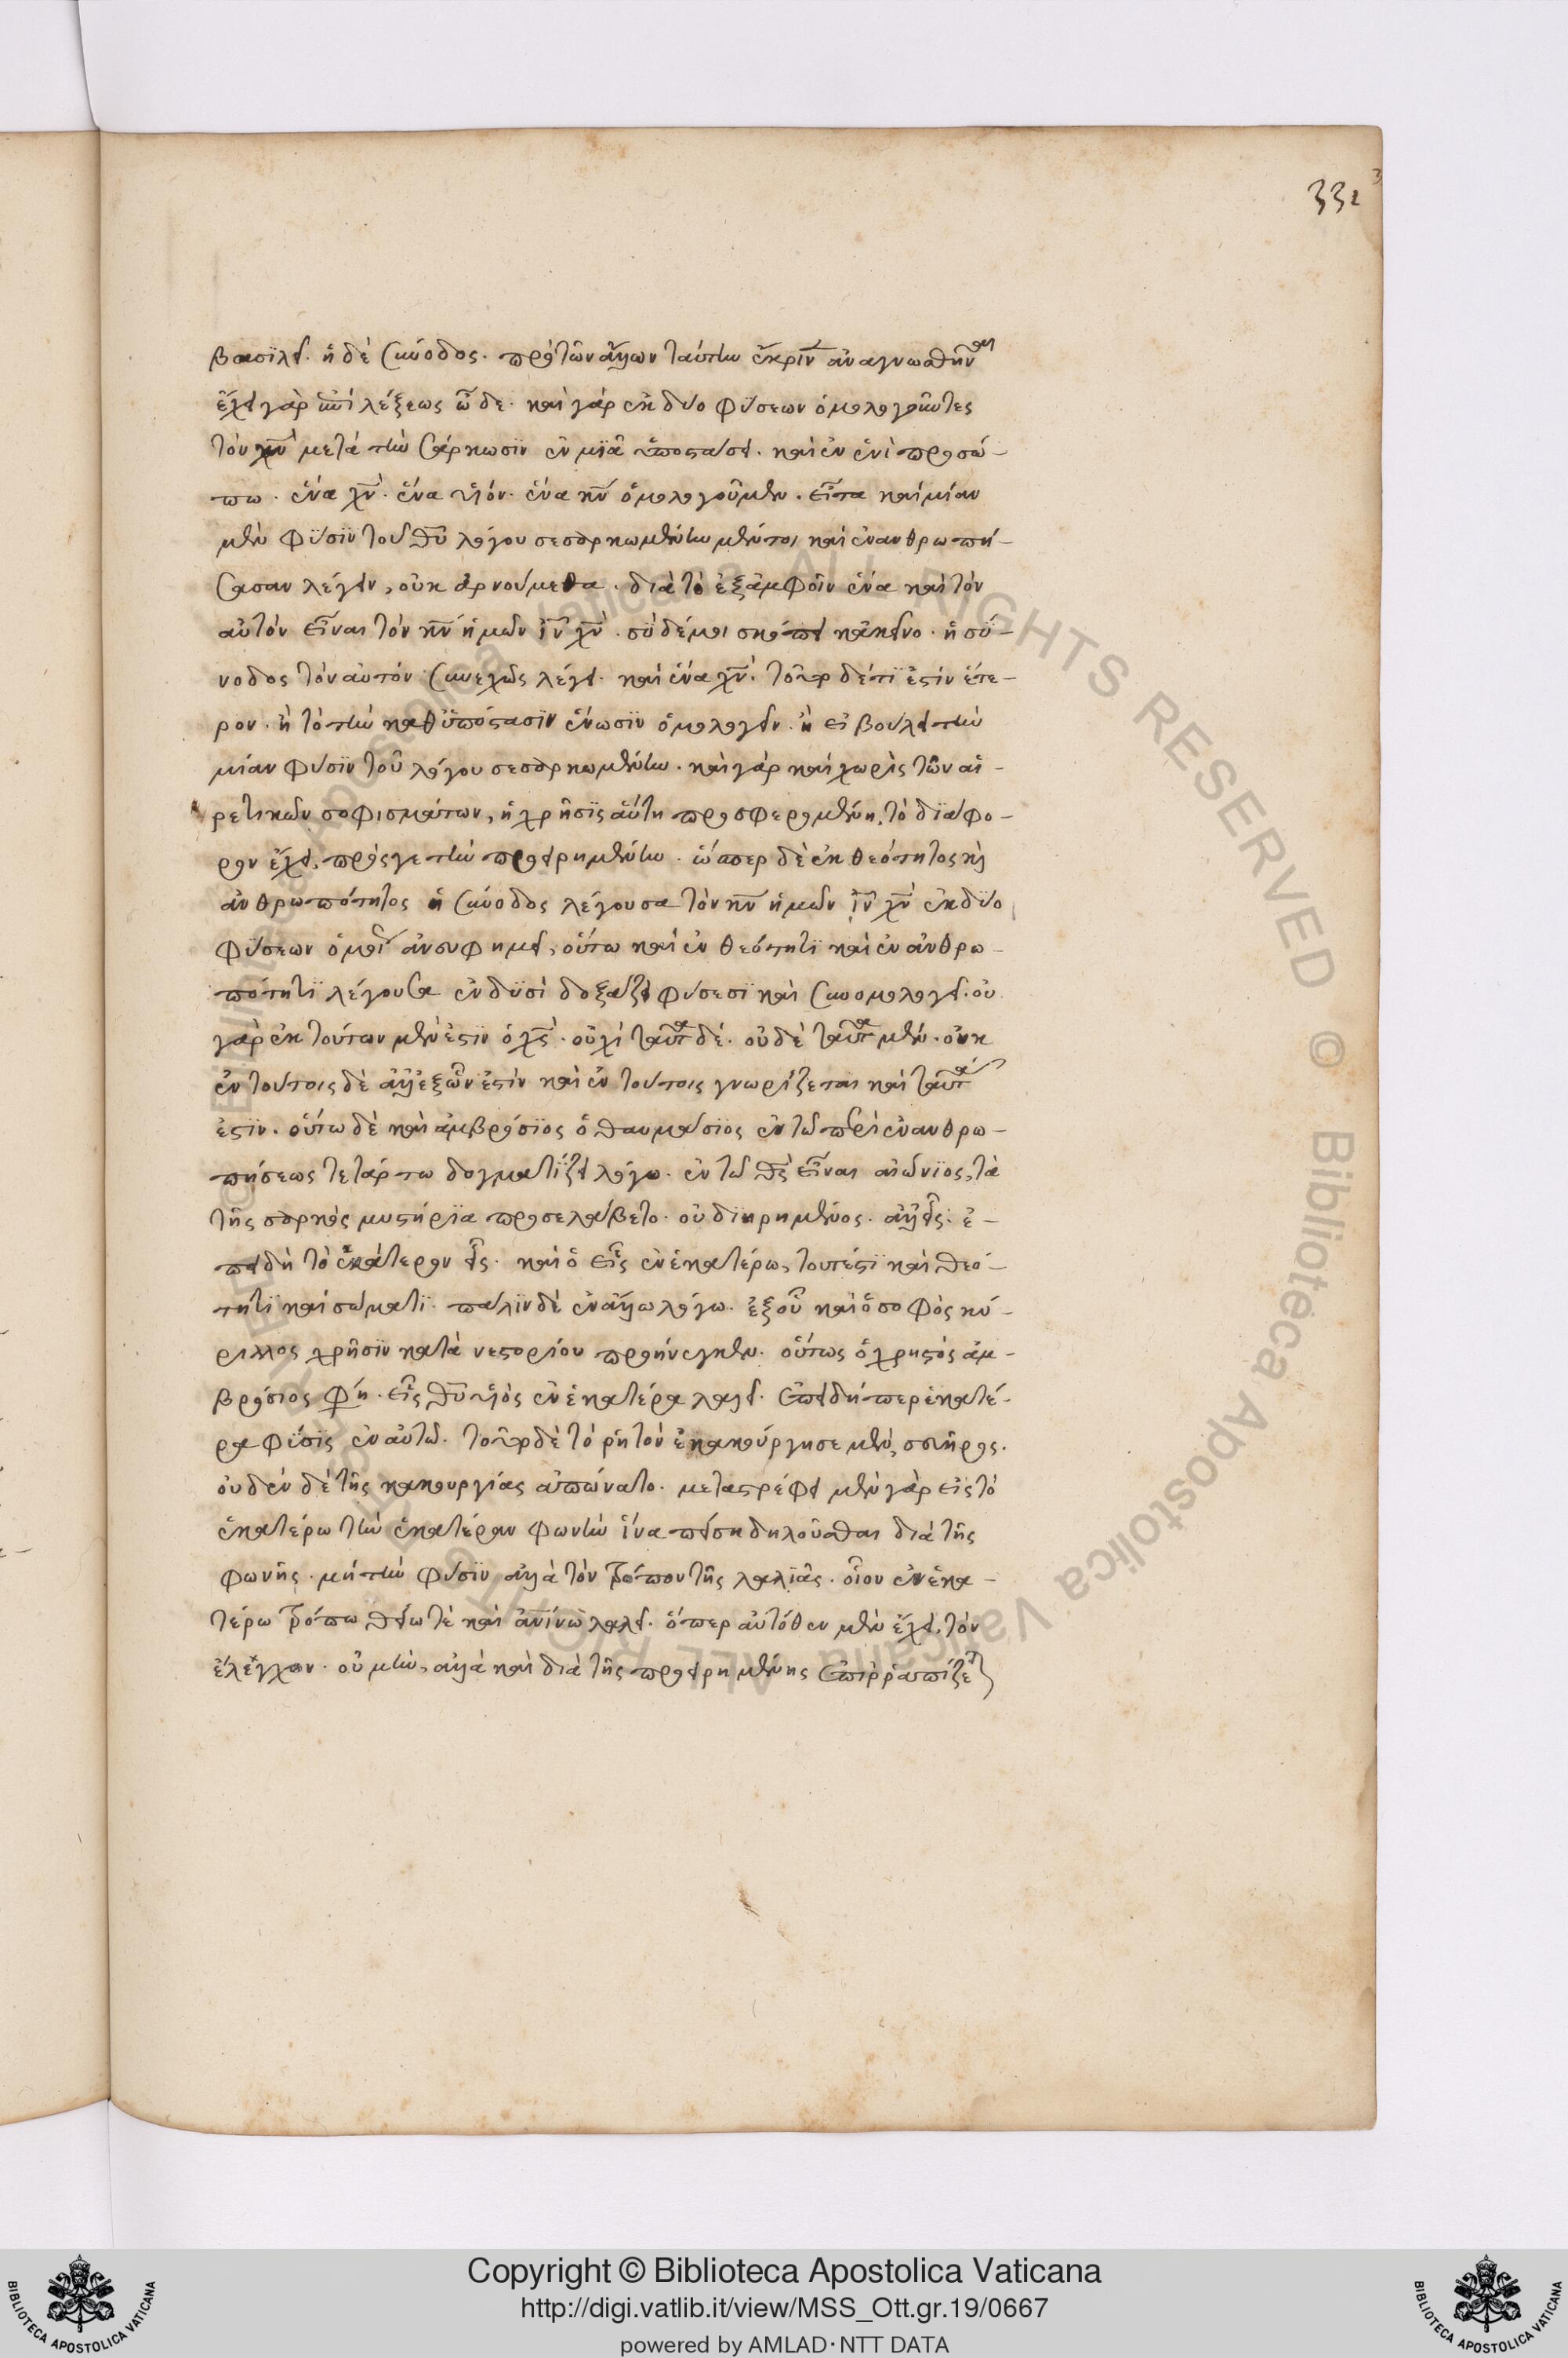 332
βασϊλει. ἡ δὲ σύνοδος. πρὸ τῶν ἄλλων ταύτην ἔκριν ἀναγνωσθῆναι
ἔχει γὰρ ἐπὶ λέξεως ὧδε. καὶ γὰρ ἐκ δύο φύσεων ὁμολογοῦντες
τὸν χν μετὰ τὴν σάρκωσϊν ἐν μϊᾶ ὑποστάσει. καὶ ἐν ἑνὶ προσώ-
πω. ἕνα χν. ἕνα υἱόν. ἕνα κν ὁμολογοῦμεν. εἶτα καὶ μίαν
μὲν φύσϊν τοῦ θυ λόγου σεσαρκωμένην μέντοι καὶ ἐνανθρωπή-
σασαν λέγειν, οὐκ ἀρνούμεθα. διὰ τὸ ἐξ ἀμφοῖν ἕνα καὶ τὸν
αὐτὸν εἶναι τὸν κν ἡμῶν ιν χν. σὺ δέ μοι σκόπει κἀκεῖνο. ἡ σύ-
νοδος τὸν αὐτὸν συνεχῶς λέγει. καὶ ἕνα χν. τοῦτο δὲ τί ἐστὶν ἕτε-
ρον. ἢ τὸ τὴν καθ ὑπόστασϊν ἕνωσϊν ὁμολογεῖν. ἢ εἰ βούλει τὴν
μίαν φύσϊν τοῦ λόγου σεσαρκωμένην. καὶ γὰρ καὶ χωρὶς τῶν αἱ-
ρετικῶν σοφισμάτων, ἡ χρῆσϊς αὕτη προσφερομένη, τὸ δϊάφο-
ρον ἔχει, πρός γε τὴν προειρημένην. ὥσπερ δὲ ἐκ θεότητος κὶ
ἀνθρωπότητος ἡ σύνοδος λέγουσα τὸν κν ἡμῶν ιν χν ἐκ δύο
φύσεων ὁμοῦ ἀνευφημεῖ, οὕτω καὶ ἐν θεότητϊ καὶ ἐν ἀνθρω-
πότητϊ λέγουσα ἐν δϋσὶ δοξάζει φύσεσϊ καὶ συνομολογεῖ. οὐ
γὰρ ἐκ τούτων μὲν ἐστϊν ὁ χς. οὐχὶ ταῦτα δέ. οὐδὲ ταῦτα μέν. οὐκ
ἐν τούτοις δὲ ἀλλ ἐξ ὧν ἐστὶν καὶ ἐν τούτοις γνωρίζεται καὶ ταῦτα
ἐστϊν. οὕτω δὲ καὶ ἀμβρόσϊος ὁ θαυμάσϊος ἐν τῶ περὶ ἐνανθρω-
πήσεως τετάρτω δογματίζει λόγω. ἐν τῶ θς εἶναι αἰώνϊος, τὰ
τῆς σαρκὸς μυστήρϊα προσελάβετο. οὐ διηρημένος. ἀλλ εἷς. ἐ-
πειδὴ τὸ ἑκάτερον εἷς. καὶ ὁ εἷς ἐν ἑκατέρω, τουτέστϊ καὶ θεό-
τητϊ καὶ σώματϊ. πάλϊν δὲ ἐν ἄλλω λόγω. ἐξ οὗ καὶ ὁ σοφὸς κύ-
ριλλος χρῆσϊν κατὰ νεστορίου προήνεγκεν. οὕτως ὁ χρηστὸς ἀμ-
βρόσιος φη. εἷς θυ υἱὸς ἐν ἑκατέρα λαλεῖ. ἐπειδήπερ ἑκατέ-
ρα φύσϊς ἐν αὐτῶ. τοῦτο δὲ τὸ ῥητὸν ἐκακούργησε μὲν, σευῆρος.
οὐδὲν δὲ τῆς κακουργίας ἀπώνατο. μεταστρέφει μὲν γὰρ εἰς τὸ
ἑκατέρω τὴν ἑκατέραν φωνὴν ἵνα πείση δηλοῦσθαι διὰ τῆς
φωνῆς. μὴ τὴν φύσϊν ἀλλὰ τὸν τρόπον τῆς λαλϊᾶς. οἷον ἐν ἑκα-
τέρω τρόπω θείω τὲ καὶ ἀνίνω λαλεῖ. ὅπερ αὐτόθεν μὲν ἔχει, τὸν
ἔλεγχον. οὐ μὴν, ἀλλὰ καὶ διὰ τῆς προειρημένης ἐπιρραπίζε
Copyright © Biblioteca Apostolica Vaticana
http://digi.vatlib.it/view/MSS_Ott.gr.19/0667
powered by AMLAD·NTT DATA